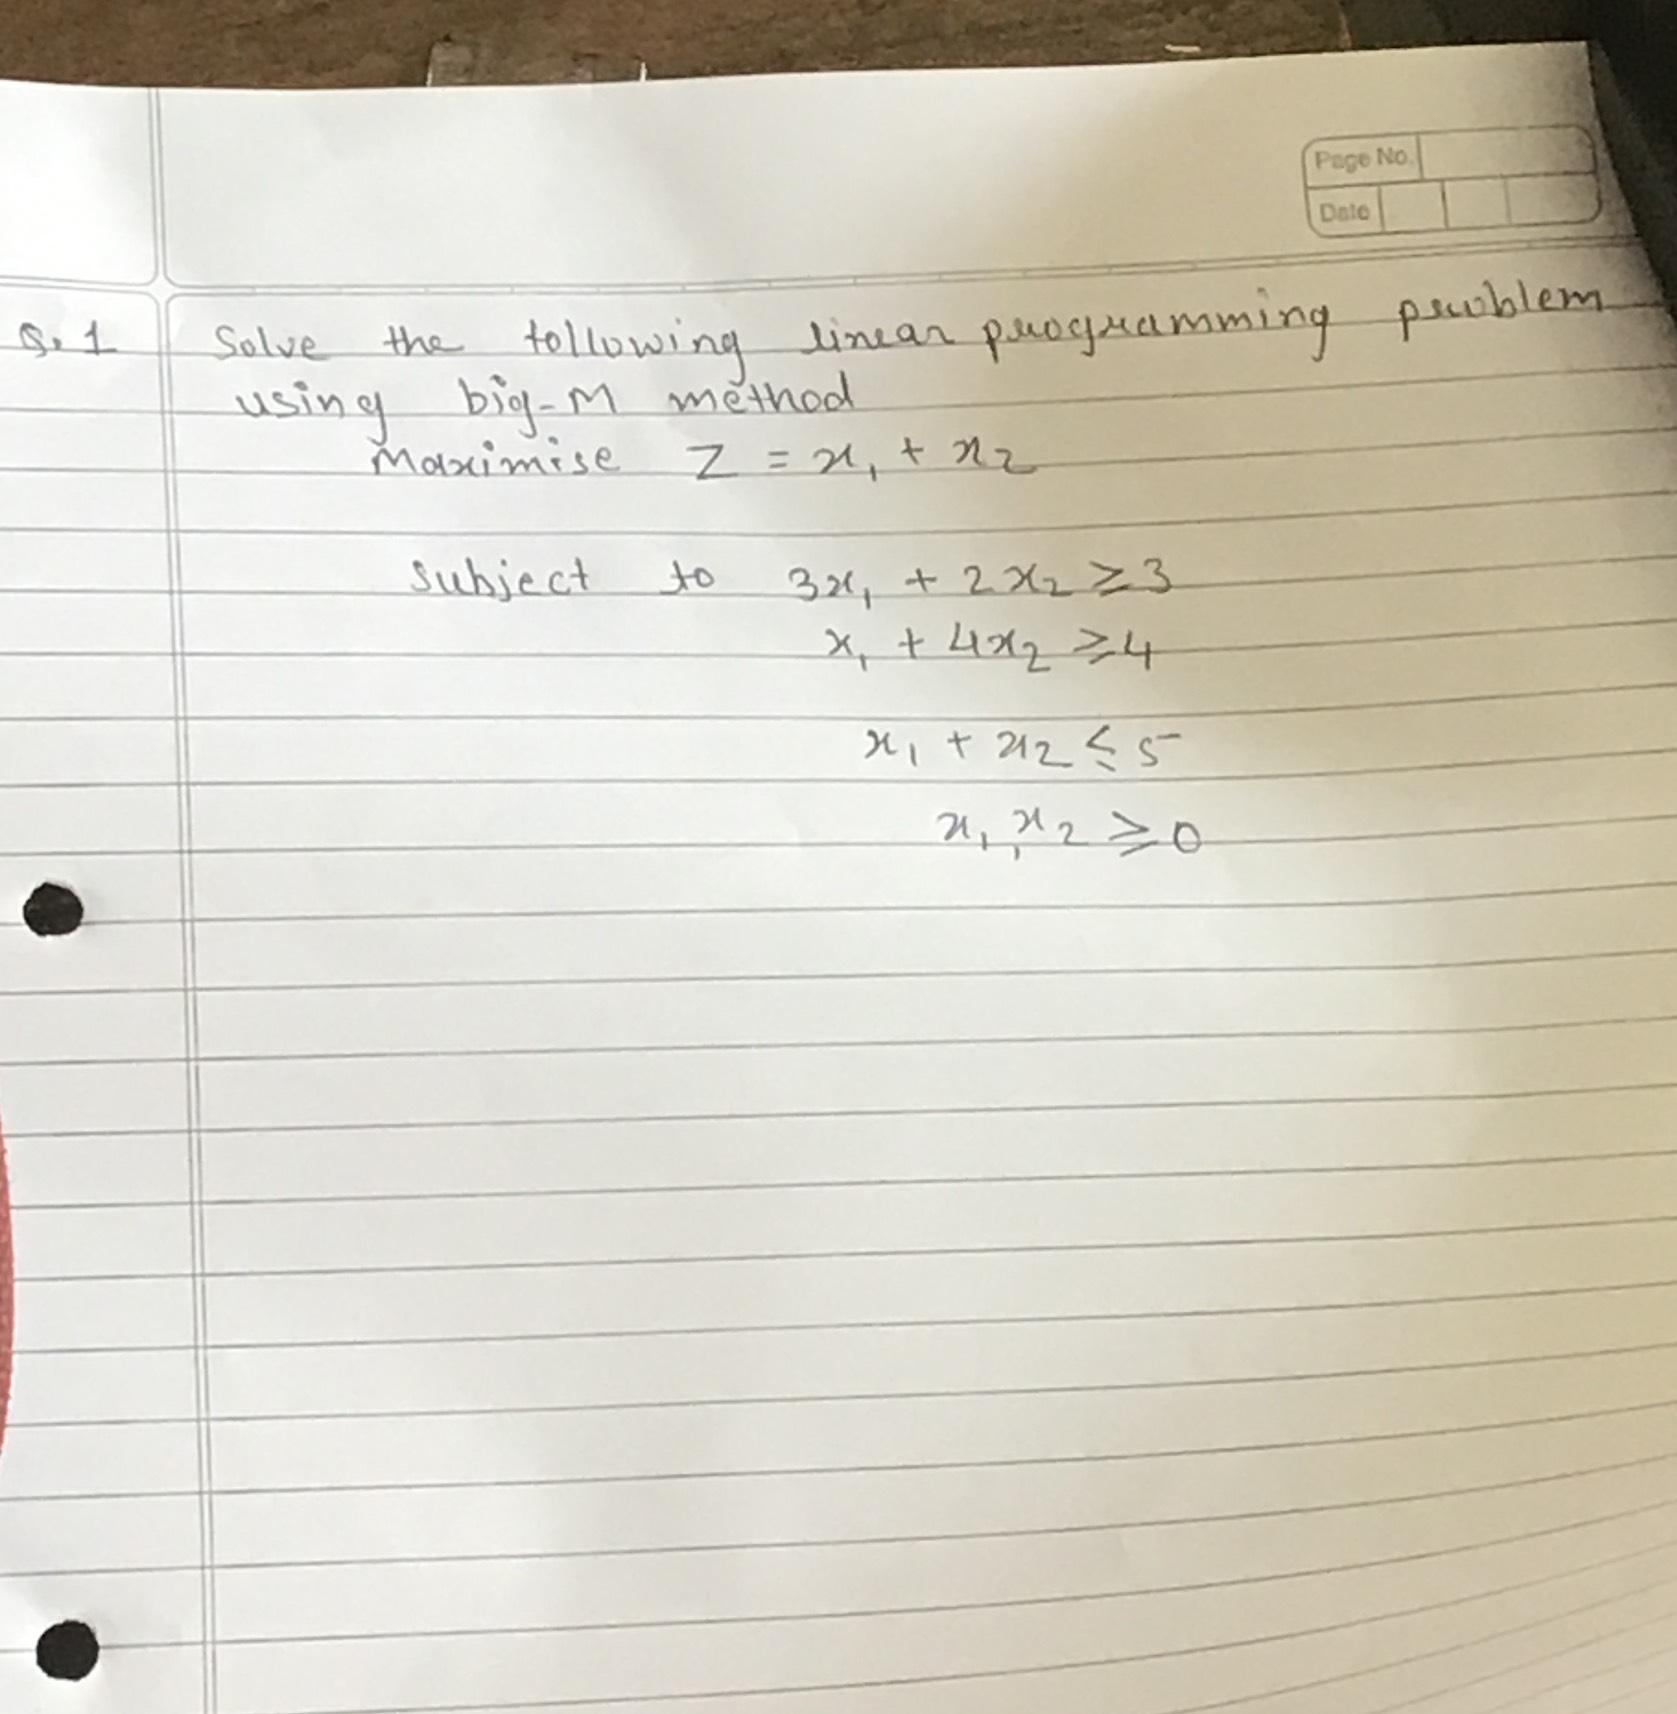 Page No.
Date
Q.1 Solve the following linear programming problem
using big-M method
Maximise Z = x₁ + x₂
Subject to 3x₁ + 2x₂ ≥ 3
x₁ + 4x₂ ≥ 4
x₁ + x₂ ≤ 5
x₁, x₂ ≥ 0